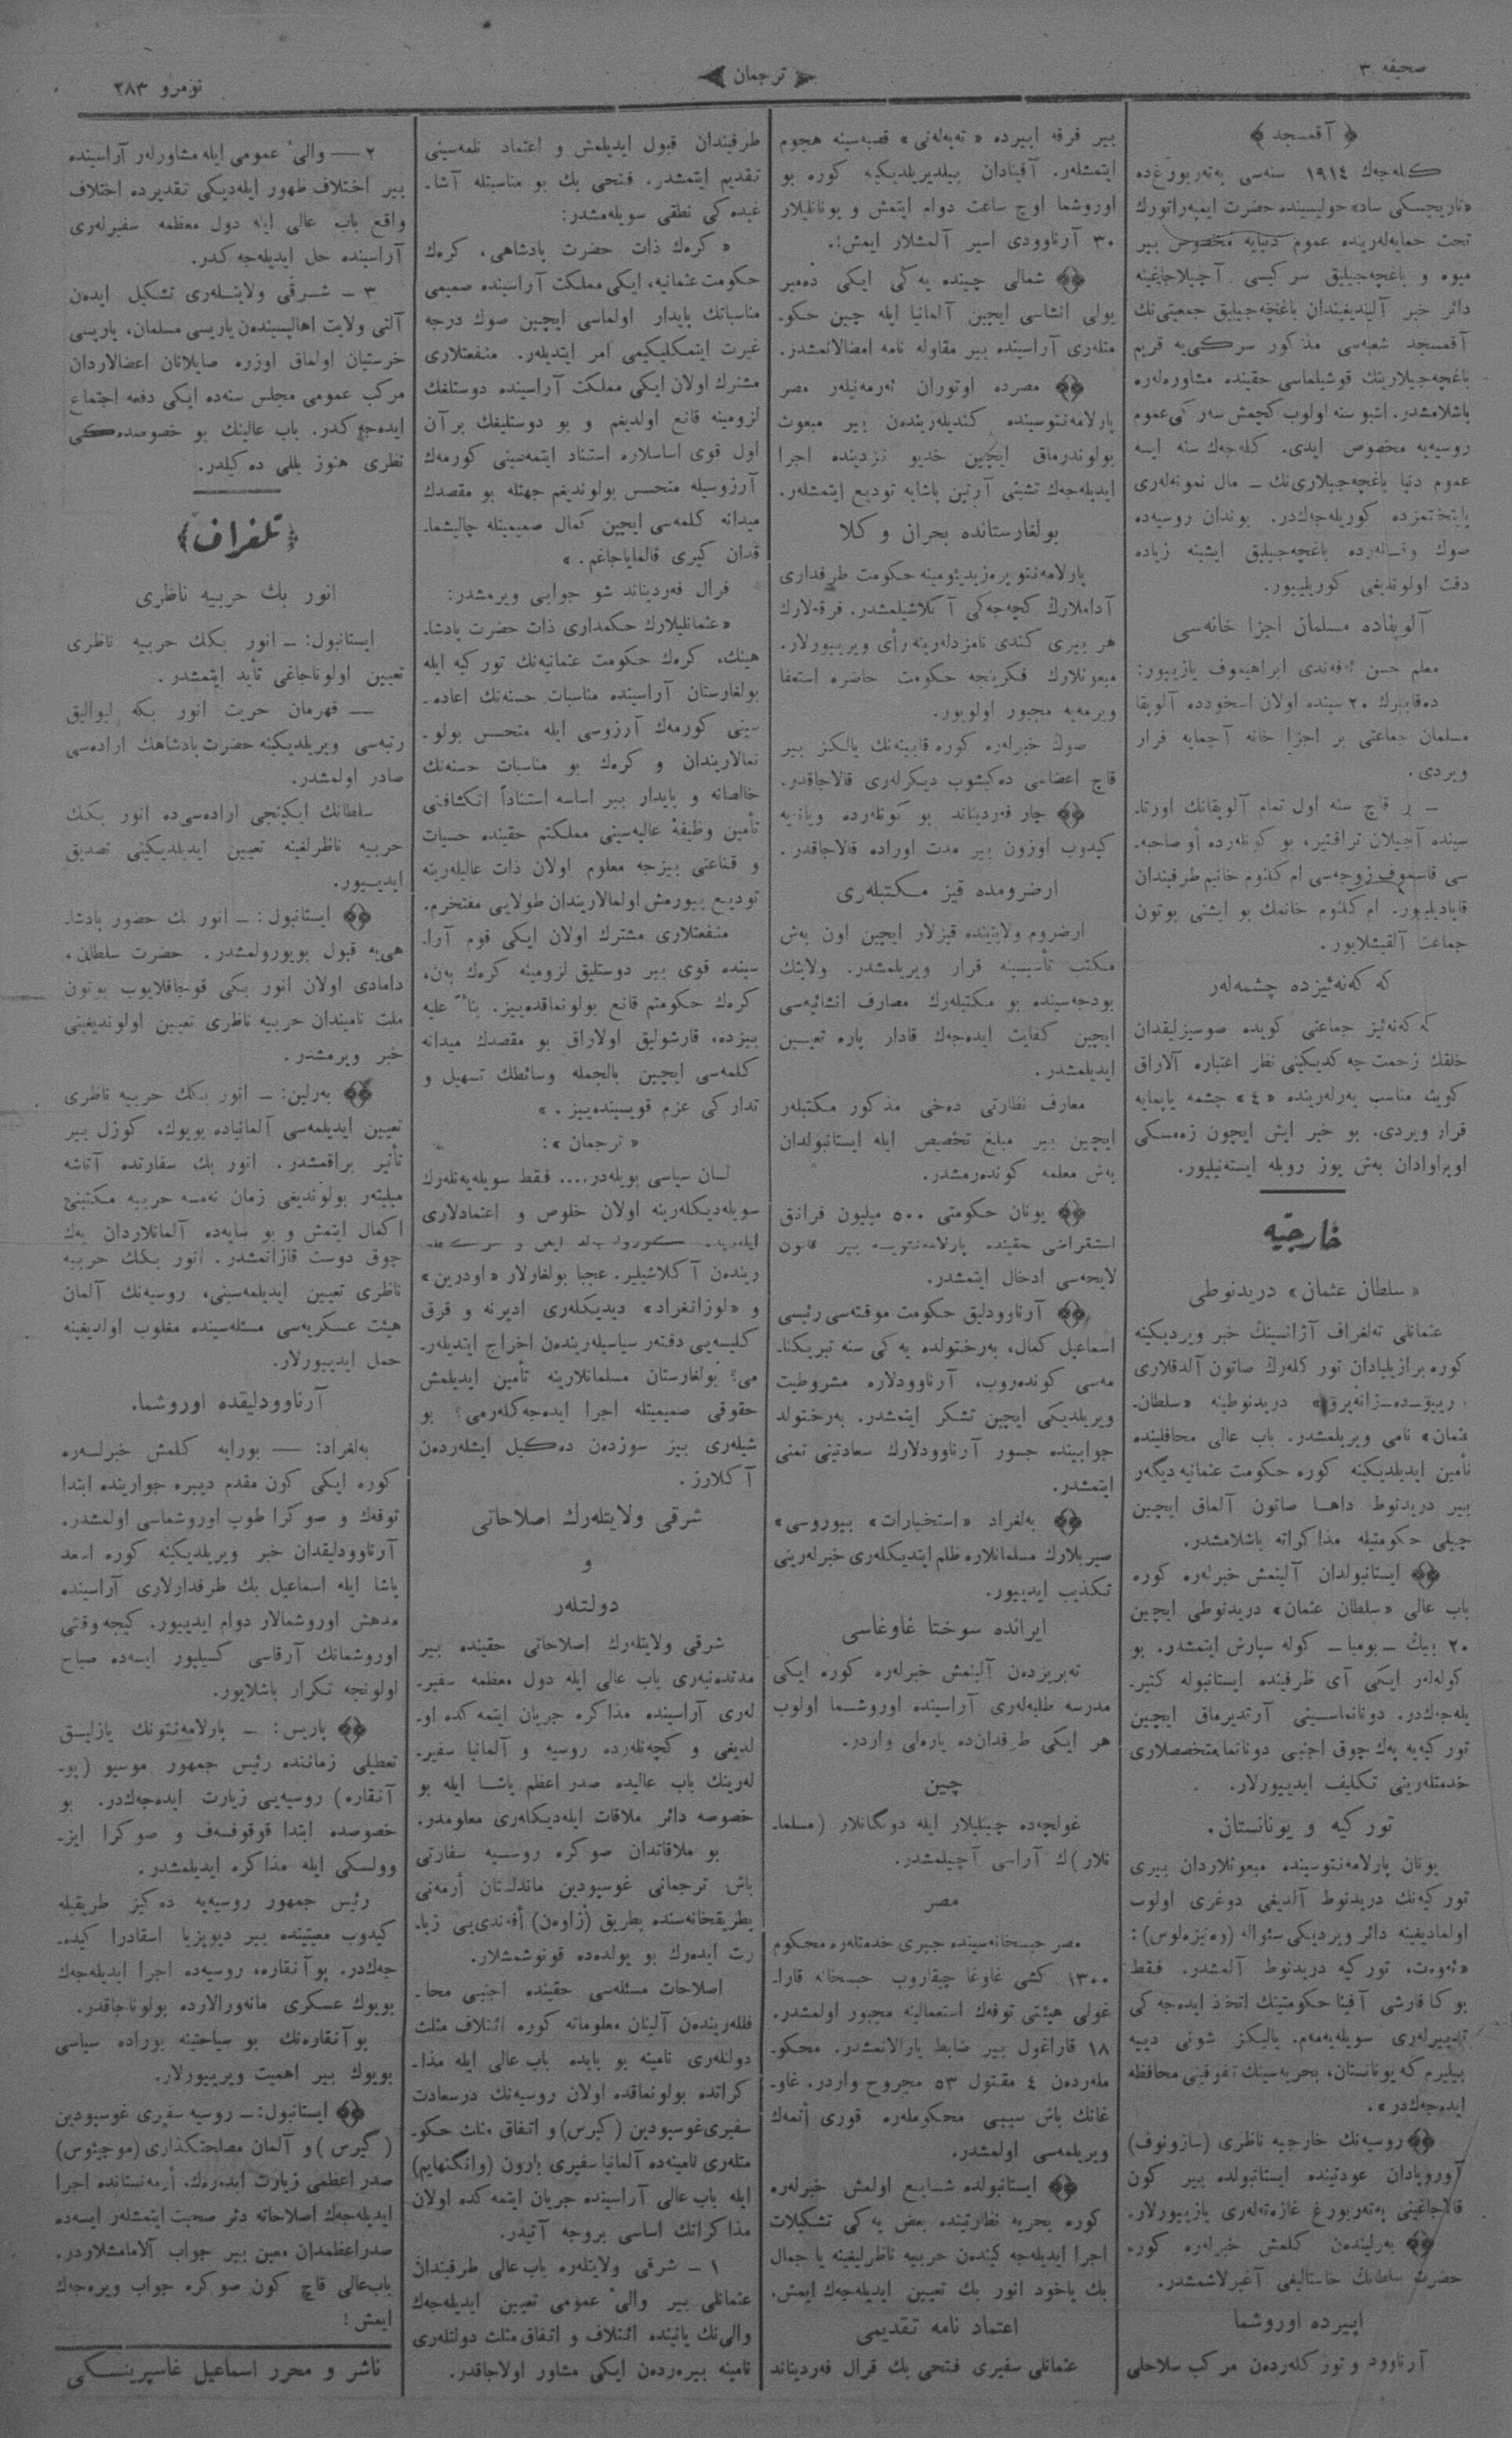 صحيفه ۳
ترجمان
نومرو ۲۸۳
﴿ آقمسجد ﴾
كله‌جه‌ك ۱۹۱٤ سنه‌سی په‌ته‌ربورغ‌ده
تحت حمايه‌لرينده عموم دنيايه مخصوص بير
ميوه و باغچه‌جيليق سركيسی آچيلاجاغينه
دائر خبر آلينديغيندان باغچه‌جيليق جمعيتی‌نك
آقمسجد شعبه‌سی مذكور سركی‌يه قريم
باغچه‌جيلارينك قوشيلماسی حقينده مشاوره‌لره
باشلامشدر. اشبو سنه اولوب كچمش سه‌ركی عموم
روسيه‌يه مخصوص ايدی. كله‌جه‌ك سنه ايسه
عموم دنيا باغچه‌جيلاری‌نك ــ مال نمونه‌له‌ری
پايتختمزده كوريله‌جه‌كدر. بوندان روسيه‌ده
دقت اولونديغی كوريلييور.
آلوپقاده مسلمان اجزا خانه‌سی
معلم حسن ئه‌فه‌ندی ابراهيموف يازييور:
ده‌قابرك ۲۰ سينده اولان اسخودده آلوپقا
مسلمان جماعتی بر اجزا خانه آچمايه قرار
ويردی.
ــ بر قاچ سنه اول تمام آلوپقانك اورتا‌ـ
سينده آچيلان تراقتير، بو كونله‌رده أو صاحبه‌ـ
سی قاسموف زوجه‌سی ام كلثوم خانيم طرفيندان
قاپاديليور. ام كلثوم خانمك بو ايشنی بوتون
جماعت آلقيشلايور.
كه كه‌نه‌ئيزده چشمه‌له‌ر
كه كه‌نه‌ئيز جماعتی كويده صوسيزليقدان
خلقك زحمت چه كديكينی نظر اعتباره آلاراق
كويك مناسب يه‌رله‌رينده «٤» چشمه ياپمايه
قرار ويردی. بو خير ايش ايچون زه‌مسكی
اوپراوادان به‌ش يوز روبله ايسته‌نيليور.
خارجيّه
«سلطان عثمان» دريدنوطی
عثمانلی ته‌لغراف آژانسينك خبر ويرديكينه
كوره برازيليادان تورك‌له‌رك صاتون آلدقلاری
«ريیو‌ـ‌ده‌ـ‌ژانه‌يرو» دريدنوطينه «سلطان‌ـ
عثمان» نامی ويريلمشدر. باب عالی محافلينده
تأمين ايديلديكينه كوره حكومت عثمانيه ديگه‌ر
بير دريدنوط داهـا صاتون آلماق ايچين
چيلی حكومتيله مذاكراته باشلامشدر.
ايستانبولدان آلينمش خبرله‌ره كوره
باب عالی «سلطان عثمان» دريدنوطی ايچين
۲۰ بيڭ ــ بومبا ــ كوله سپارش ايتمشدر. بو
كوله‌له‌ر ايكی آی ظرفينده ايستانبوله كتير‌ـ
يله‌جه‌كدر. دونانماسينی آرتديرماق ايچين
توركيه‌يه په‌ك چوق اجنبی دونانما متخصصلاری
خدمتله‌رينی تكليف ايدييورلار.
توركيه و يونانستان.
يونان پارلامه‌نتوسينده مبعوثلاردان بيری
توركيه‌نك دريدنوط آلديغی دوغری اولوب
اولماديغينه دائر ويرديكی سئواله (وه‌نيزه‌لوس):
«ئه‌وه‌ت، توركيه دريدنوط آلمشدر. فقط
بوكا قارشی آفينا حكومتينك اتخاذ ايده‌جه‌كی
تدبيرله‌ری سويله‌يه‌مه‌م. ياليكز شونی دييه
بيليرم كه يونانستان، بحريه‌سينك تفوقينی محافظه
ايده‌جه‌كدر».
روسيه‌نك خارجيه ناظری (سازونوف)
آوروپادان عودتينده ايستانبولده بير كون
قالاجاغينی په‌ته‌ربورغ غازه‌ته‌له‌ری يازييورلار.
به‌رليندن كلمش خبرله‌ره كوره
حضرت سلطانك خاستاليغی آغيرلاشمشدر.
اپيرده اوروشما
آرناوود و تورك‌له‌ردن مركب سلاحلی
بير فرقه اپيرده «ته‌په‌له‌نی» قصبه‌سينه هجوم
ايتمشله‌ر. آفينادان بيلديريلديكينه كوره بو
اوروشما اوچ ساعت دوام ايتمش و يونانليلار
۳۰ آرناوودی اسير آلمشلار ايمش.
شمالی چينده يه‌كی ايكی ده‌مير
يولی انشاسی ايچين آلمانيا ايله چين حكو‌ـ
متله‌ری آراسينده بير مقاوله نامه امضالانمشدر.
مصرده اوتوران ئه‌رمه‌نيله‌ر مصر
پارلامه‌نتوسينده كنديله‌ريندن بير مبعوث
بولوندرماق ايچين خديو نزدينده اجرا
ايديله‌جه‌ك تشبثی آرتين پاشايه توديع ايتمشله‌ر.
بولغارستانده بحران وكلا
آدامه‌لارك كچه‌جه‌كی آكلاشيلمشدر. فرقه‌لارك
هر بيری كندی نامزدله‌رينه رأی ويرييورلار.
مبعوثلارك فكرينجه حكومت حاضره استعفا
ويرمه‌يه مجبور اولويور.
صوك خبرله‌ره كوره قابينه‌نك يالكز بير
قاچ اعضاسی ده‌كيشوب ديكرله‌ری قالاجاقدر.
چار فه‌رديناند بو كونله‌رده ويانه‌يه
كيدوب اوزون بير مدت اوراده قالاجاقدر.
ارضرومده قيز مكتبله‌ری
ارضروم ولايتينده قيزلار ايچين اون به‌ش
مكتب تأسيسينه قرار ويريلمشدر. ولايتك
بودجه‌سينده بو مكتبله‌رك مصارف انشائيه‌سی
ايچين كفايت ايده‌جه‌ك قادار پاره تعيين
ايديلمشدر.
معارف نظارتی ده‌خی مذكور مكتبله‌ر
ايچين بير مبلغ تخصيص ايله ايستانبولدان
به‌ش معلمه كونده‌رمشدر.
يونان حكومتی ۵۰۰ ميليون فرانق
استقراض حقينده پارلامه‌نتويه بير قانون
لايحه‌سی ادخال ايتمشدر.
آرناوودليق حكومت موقته‌سی رئيسی
اسماعيل كمال، به‌رختولده يه‌كی سنه تبريكنا‌ـ
مه‌سی كونده‌روب، آرناوودلاره مشروطيت
ويريلديكی ايچين تشكر ايتمشدر. به‌رختولد
جوابينده جسور آرناوودلارك سعادتينی تمنی
ايتمشدر.
به‌لغراد «استخبارات» بيوروسی
صيربلارك مسلمانلاره ظلم ايتديكله‌ری خبرله‌رينی
تكذيب ايدييور.
ايرانده سوختا غاوغاسی
ته‌بريزدن آلينمش خبرله‌ره كوره ايكی
مدرسه طلبه‌له‌ری آراسينده اوروشما اولوب
هر ايكی طرفدان‌ده ياره‌لی واردر.
چين
غولجه‌ده چينليلار ايله دونگانلار (مسلما‌ـ
نلار)ك آراسی آچيلمشدر.
مصر
مصر حبسخانه‌سينده جبری خدمتله‌ره محكوم
۱۳۰۰ كشی غاوغا چيقاروب حبسخانه قارا‌ـ
غولی هيئتی توفه‌ك استعمالينه مجبور اولمشدر.
۱۸ قاراغول بير ضابط يارالانمشدر. محكو‌ـ
مله‌ردن ٤ مقتول ۵۳ مجروح واردر. غاو‌ـ
غانك باش سببی محكومله‌ره قوری أتمه‌ك
ويريلمه‌سی اولمشدر.
ايستانبولده شايع اولمش خبرله‌ره
كوره بحريه نظارتينده بعض يه‌كی تشكيلات
اجرا ايديله‌جه كيندن حربيه ناظرليغينه يا جمال
بك ياخود انور بك تعيين ايديله‌جه‌ك ايمش.
اعتماد نامه تقديمی
عثمانلی سفيری فتحی بك قرال فه‌رديناند
طرفيندان قبول ايديلمش و اعتماد نامه‌سينی
تقديم ايتمشدر. فتحی بك بو مناسبتله آشا‌ـ
غيده‌كی نطقی سويله‌مشدر:
«كره‌ك ذات حضرت پادشاهی، كره‌ك
حكومت عثمانيه، ايكی مملكت آراسينده صميمی
مناسباتك پايدار اولماسی ايچين صوك درجه
غيرت ايتمكليكيمی امر ايتديله‌ر. منفعتلاری
مشترك اولان ايكی مملكت آراسينده دوستلغك
لزومينه قانع اولديغم و بو دوستليغك بر آن
اول قوی اساسلاره استناد ايتمه‌سينی كورمه‌ك
آرزوسيله متحسس بولونديغم جهتله بو مقصدك
ميدانه كلمه‌سی ايچين كمال صميميتله چاليشما‌ـ
قدان كيری قالماياجاغم.»
قرال فه‌رديناند شو جوابی ويرمشدر:
«عثمانليلارك حكمداری ذات حضرت پادشا‌ـ
هينك، كره‌ك حكومت عثمانيه‌نك توركيه ايله
بولغارستان آراسينده مناسبات حسنه‌نك اعاده‌ـ
سينی كورمه‌ك آرزوسی ايله متحسس بولو‌ـ
نمالاريندان و كره‌ك بو مناسبات حسنه‌نك
خالصانه و پايدار بير اساسه استناداً انكشافنی
تأمين وظيفهٔ عاليه‌سينی مملكتم حقينده حسيات
و قناعتی بيزجه معلوم اولان ذات عاليله‌رينه
توديع بيورمش اولمالاريندان طولايی مفتخرم.
منفعتلاری مشترك اولان ايكی قوم آرا‌ـ
سينده قوی بير دوستليق لزومينه كره‌ك به‌ن،
كره‌ك حكومتم قانع بولونماقده‌ييز. بناءً عليه
بيزده، قارشوليق اولاراق بو مقصدك ميدانه
كلمه‌سی ايچين بالجمله وسائطك تسهيل و
تداركی عزم قويسينده‌ييز.»
«ترجمان»:
لسان سياسی بويله‌در.... فقط سويله‌يه‌نله‌رك
سويله‌ديكله‌رينه اولان خلوص و اعتمادلاری
ريندن آكلاشيلير. عجبا بولغارلار «اودرين»
و «لوزانغراد» ديديكله‌ری اديرنه و قرق
كليسه‌يی دفتر سياسيله‌ريندن اخراج ايتديله‌ر‌ـ
می؟ بولغارستان مسلمانلارينه تأمين ايديلمش
حقوقی صميميتله اجرا ايده‌جه‌كله‌رمی؟ بو
شيله‌ری بيز سوزدن ده‌كيل ايشله‌ردن
آكلارز.
شرقی ولايتله‌رك اصلاحاتی
و
دولتله‌ر
شرقی ولايتله‌رك اصلاحاتی حقينده بير
مدتدنبه‌ری باب عالی ايله دول معظمه سفير‌ـ
له‌ری آراسينده مذاكره جريان ايتمه‌كده او‌ـ
لديغی و كچه‌نله‌رده روسيه و آلمانيا سفير‌ـ
له‌رينك باب عاليده صدر اعظم پاشا ايله بو
خصوصه دائر ملاقات ايله‌ديكله‌ری معلومدر.
بو ملاقاتدان صوكره روسيه سفارتی
باش ترجمانی غوسپودين ماندلستان أرمه‌نی
بطريقخانه‌سنده بطريق (زاوه‌ن) أفه‌ندی‌يی زيا‌ـ
رت ايده‌رك بو يولده‌ده قونوشمشلار.
اصلاحات مسئله‌سی حقينده اجنبی محا‌ـ
فله‌ريندن آلينان معلوماته كوره ائتلاف مثلث
دولتله‌ری نامينه بو بابده باب عالی ايله مذا‌ـ
كراتده بولونماقده اولان روسيه‌نك درسعادت
سفيری غوسپودين (كيرس) و اتفاق مثلث حكو‌ـ
متله‌ری نامينه‌ده آلمانيا سفيری بارون (وانگنهايم)
ايله باب عالی آراسينده جريان ايتمه‌كده اولان
مذاكراتك اساسی بروجه آتيدر.
۱ ــ شرقی ولايتله‌ره باب عالی طرفيندان
عثمانلی بير والیٔ عمومی تعيين ايديله‌جه‌ك
والی‌نك يانينده ائتلاف و اتفاق مثلث دولتله‌ری
نامينه بيره‌ردن ايكی مشاور اولاجاقدر.
۲ ــ والیٔ عمومی ايله مشاورله‌ر آراسينده
بير اختلاف ظهور ايله‌ديكی تقديرده اختلاف
واقع باب عالی ايله دول معظمه سفيرله‌ری
آراسينده حل ايديله‌جه‌كدر.
۳ ــ شرقی ولايتله‌ری تشكيل ايدن
آلتی ولايت اهاليسيندن ياريسی مسلمان، ياريسی
خرستيان اولماق اوزره صايلانان اعضالاردان
مركب عمومی مجلس سنه‌ده ايكی دفعه اجتماع
ايده‌جه‌كدر. باب عالينك بو خصوصده‌كی
نظری هنوز بللی ده‌كيلدر.
﴿تلغراف﴾
انور بك حربيه ناظری
ايستانبول: ــ انور بكك حربيه ناظری
تعيين اولوناجاغی تأيد ايتمشدر.
ــ قهرمان حريت انور بكه ليواليق
رتبه‌سی ويريلديكينه حضرت پادشاهك اراده‌سی
صادر اولمشدر.
سلطانك ايكينجی اراده‌سی‌ده انور بكك
حربيه ناظرلغينه تعيين ايديلديكينی تصديق
ايدييور.
ايستانبول: ــ انور بك حضور پادشا‌ـ
هی‌يه قبول بويورولمشدر. حضرت سلطانی،
دامادی اولان انور بكی قوجاقلايوب بوتون
ملت ناميندان حربيه ناظری تعيين اولونديغينی
خبر ويرمشدر.
به‌رلين: ــ انور بكك حربيه ناظری
تعيين ايديلمه‌سی آلمانياده بويوك، كوزل بير
تأثير براقمشدر. انور بك سفارتده آتاشه
ميليته‌ر بولونديغی زمان نه‌مسه حربيه مكتبنی
اكمال ايتمش و بو سايه‌ده آلمانلاردان په‌ك
چوق دوست قازانمشدر. انور بكك حربيه
ناظری تعيين ايديلمه‌سينی، روسيه‌نك آلمان
هيئت عسكريه‌سی مسئله‌سينده مغلوب اولديغينه
حمل ايدييورلار.
آرناوودليقده اوروشما.
به‌لغراد: ــ بورايه كلمش خبرله‌ره
كوره ايكی كون مقدم ديبره جوارينده ابتدا
توفه‌ك و صوكرا طوپ اوروشماسی اولمشدر.
آرناوودليقدان خبر ويريلديكينه كوره اسعد
پاشا ايله اسماعيل بك طرفدارلاری آراسينده
مدهش اوروشمالار دوام ايدييور. كيجه وقتی
اوروشمانك آرقاسی كسيليور ايسه‌ده صباح
اولونجه تكرار باشلايور.
پاريس: ــ پارلامه‌نتونك يازليق
تعطيلی زماننده رئيس جمهور موسيو (پو‌ـ
آنقاره) روسيه‌يی زيارت ايده‌جه‌كدر. بو
خصوصده ابتدا قوقوفسه‌ف و صوكرا ايز‌ـ
وولسكی ايله مذاكره ايديلمشدر.
رئيس جمهور روسيه‌يه ده‌كيز طريقيله
كيدوب معيتينده بير ديويزيا اسقادرا كيده‌ـ
جه‌كدر. پوآنقاره، روسيه‌ده اجرا ايديله‌جه‌ك
بويوك عسكری مانه‌ورالارده بولوناجاقدر.
پوآنقاره‌نك بو سياحتينه بوراده سياسی
بويوك بير اهميت ويرييورلار.
ايستانبول: ــ روسيه سفيری غوسپودين
(گيرس) و آلمان مصلحتكذاری (موجيئوس)
صدر اعظمی زيارت ايده‌رك، أرمه‌نستانده اجرا
ايديله‌جه‌ك اصلاحاته دئر صحبت ايتمشله‌ر ايسه‌ده
صدراعظمدان معين بير جواب آلامامشلاردر.
باب‌عالی قاچ كون صوكره جواب ويره‌جه‌ك
ايمش!
ناشر و محرر اسماعيل غاسپرينسكی